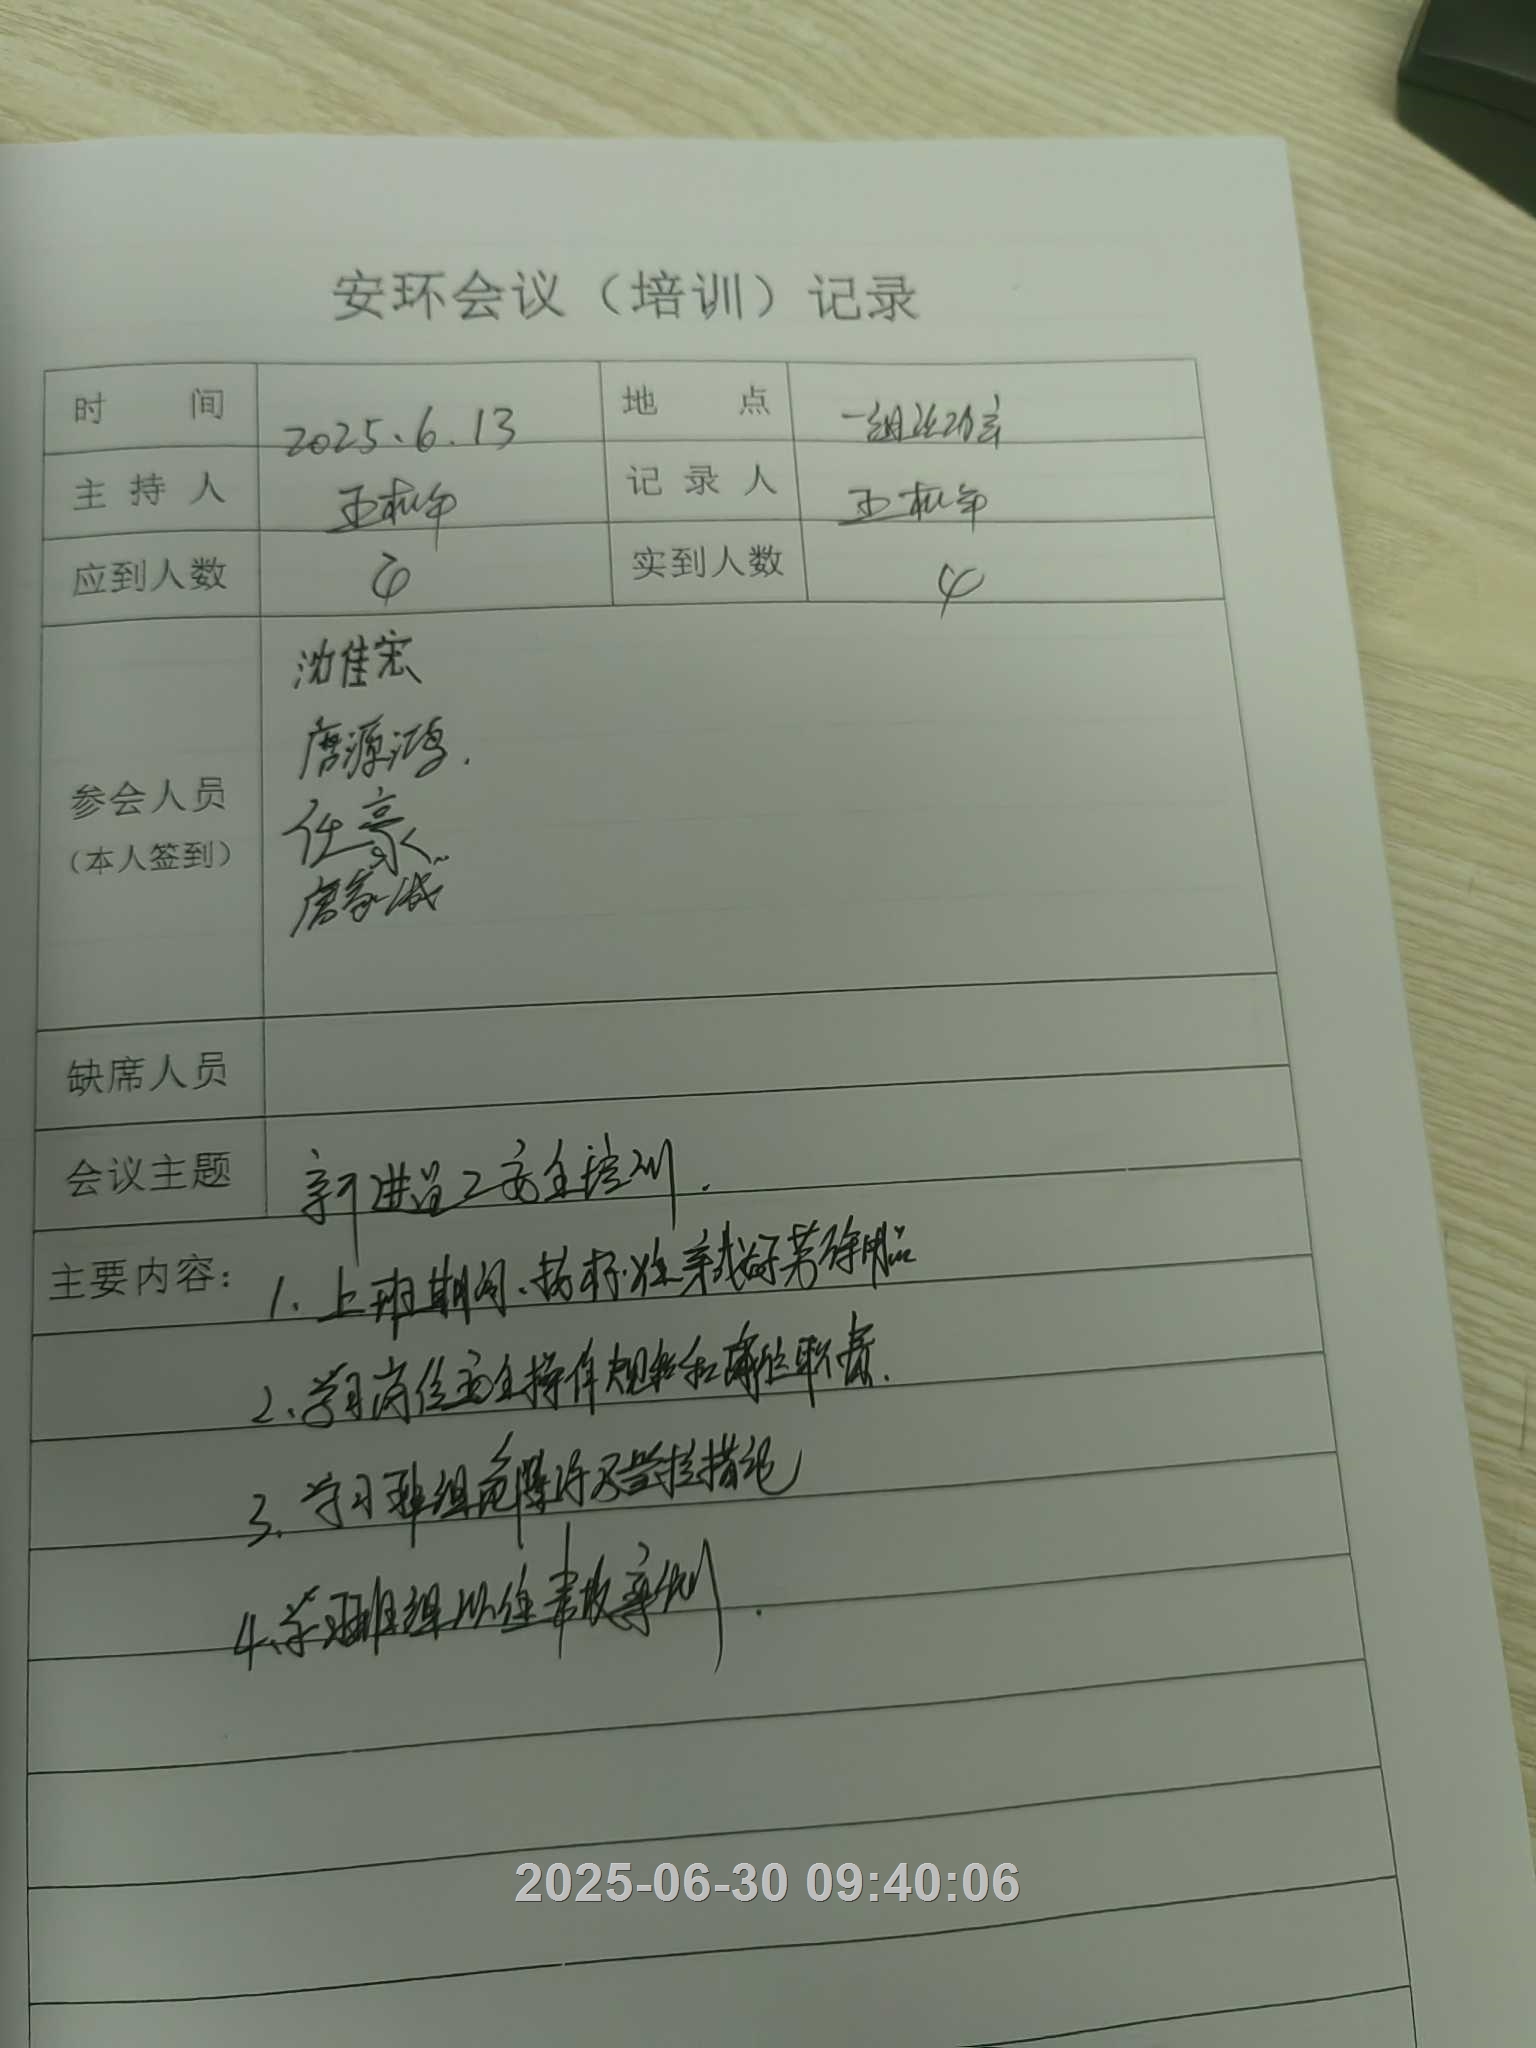 安环会议（培训）记录
时 间 2025.6.13 地 点 一组活动室
主 持 人 王松年 记 录 人 王松年
应到人数 4 实到人数 4
沈佳宏
唐源鸿.
参会人员
任豪
（本人签到）
唐家诚
缺席人员
会议主题 新进员工安全培训.
主要内容： 1. 上班期间、按标准穿戴好劳保用品
2、学习岗位安全操作规程和岗位职责.
3. 学习班组危险源及管控措施
4、学习班组以往事故案例.
2025-06-30 09:40:06